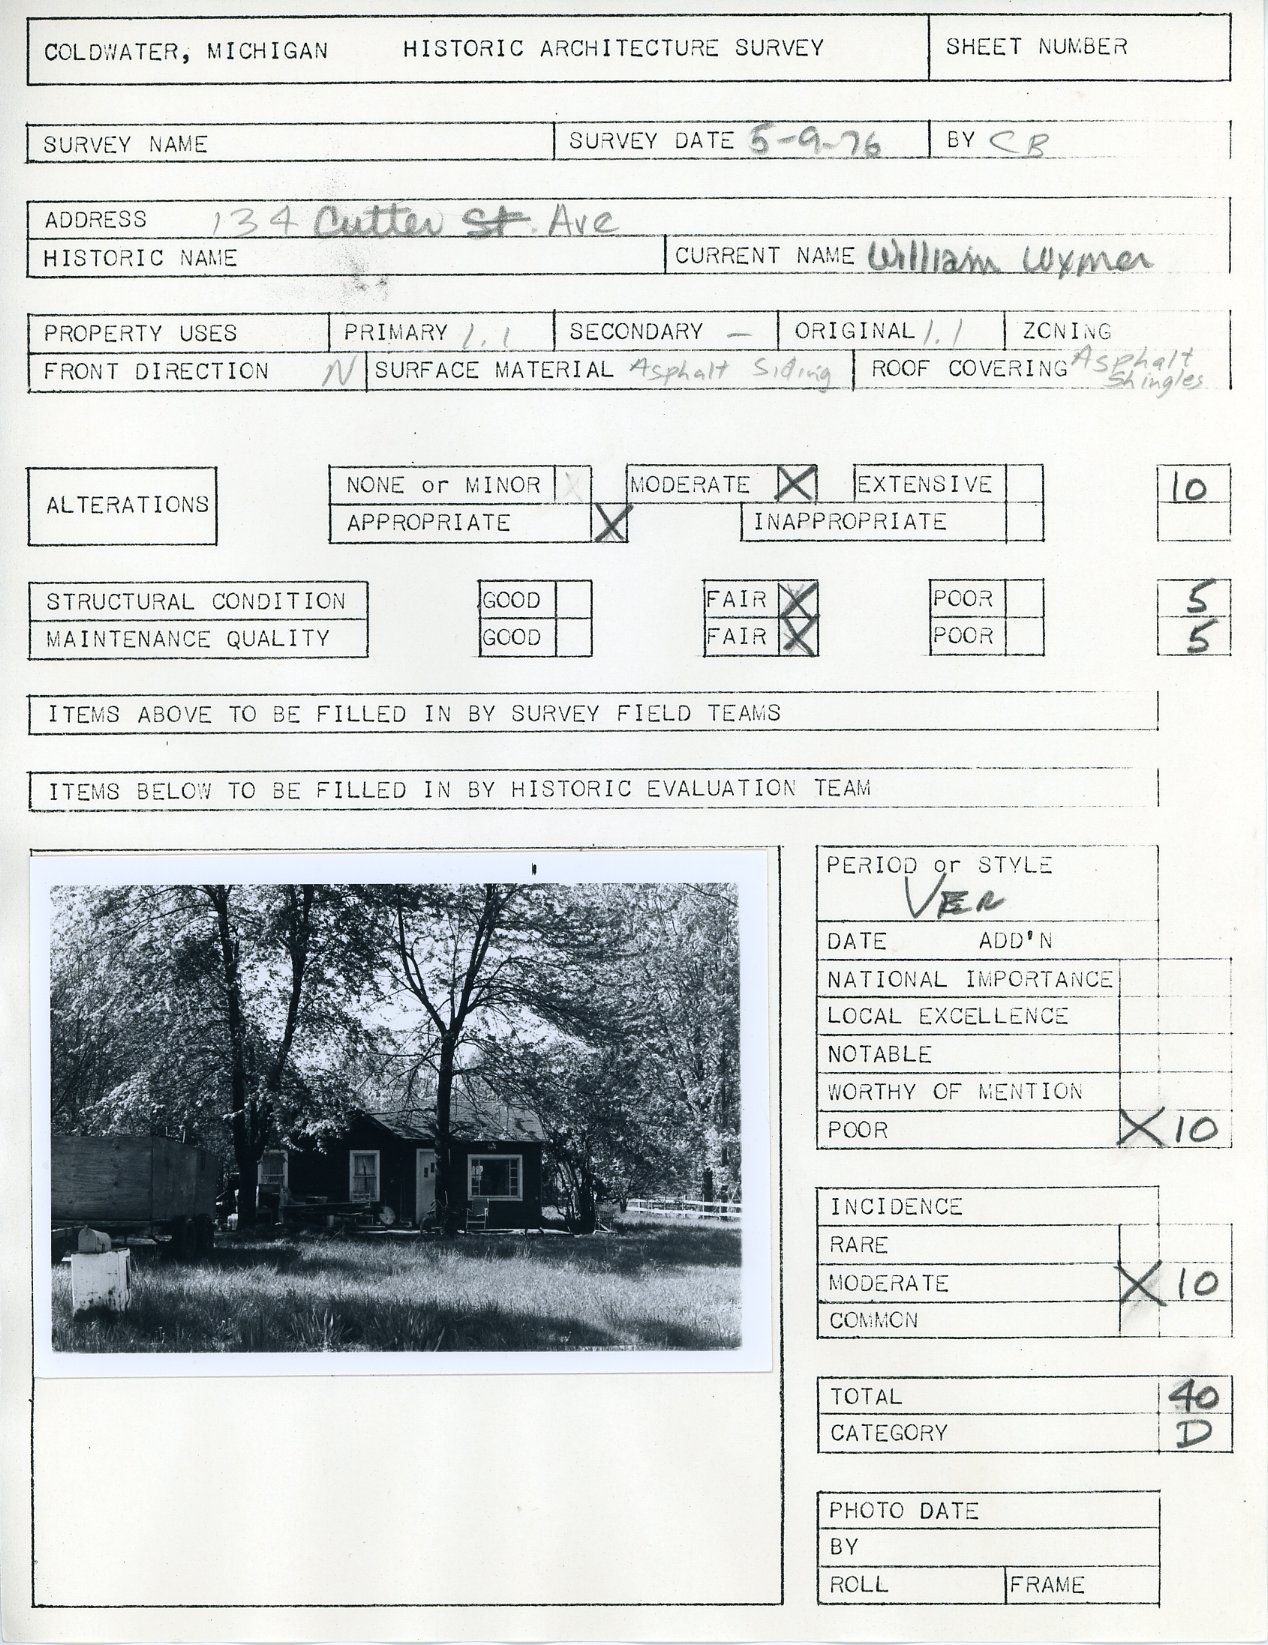 COLDWATER, MICHIGAN HISTORIC ARCHITECTURE SURVEY SHEET NUMBER
SURVEY NAME SURVEY DATE 5-9-76 BY CB
ADDRESS 134 Cutter St. Ave
HISTORIC NAME CURRENT NAME William Wymer
PROPERTY USES PRIMARY 1.1 SECONDARY - ORIGINAL 1.1 ZONING
FRONT DIRECTION N SURFACE MATERIAL Asphalt Siding ROOF COVERING Asphalt
Shingles
ALTERATIONS NONE or MINOR X MODERATE X EXTENSIVE 10
APPROPRIATE X INAPPROPRIATE
STRUCTURAL CONDITION GOOD FAIR X POOR 5
MAINTENANCE QUALITY GOOD FAIR X POOR 5
ITEMS ABOVE TO BE FILLED IN BY SURVEY FIELD TEAMS
ITEMS BELOW TO BE FILLED IN BY HISTORIC EVALUATION TEAM
PERIOD or STYLE
VER
DATE ADD'N
NATIONAL IMPORTANCE
LOCAL EXCELLENCE
NOTABLE
WORTHY OF MENTION
POOR X 10
INCIDENCE
RARE
MODERATE X 10
COMMON
TOTAL 40
CATEGORY D
PHOTO DATE
BY
ROLL FRAME